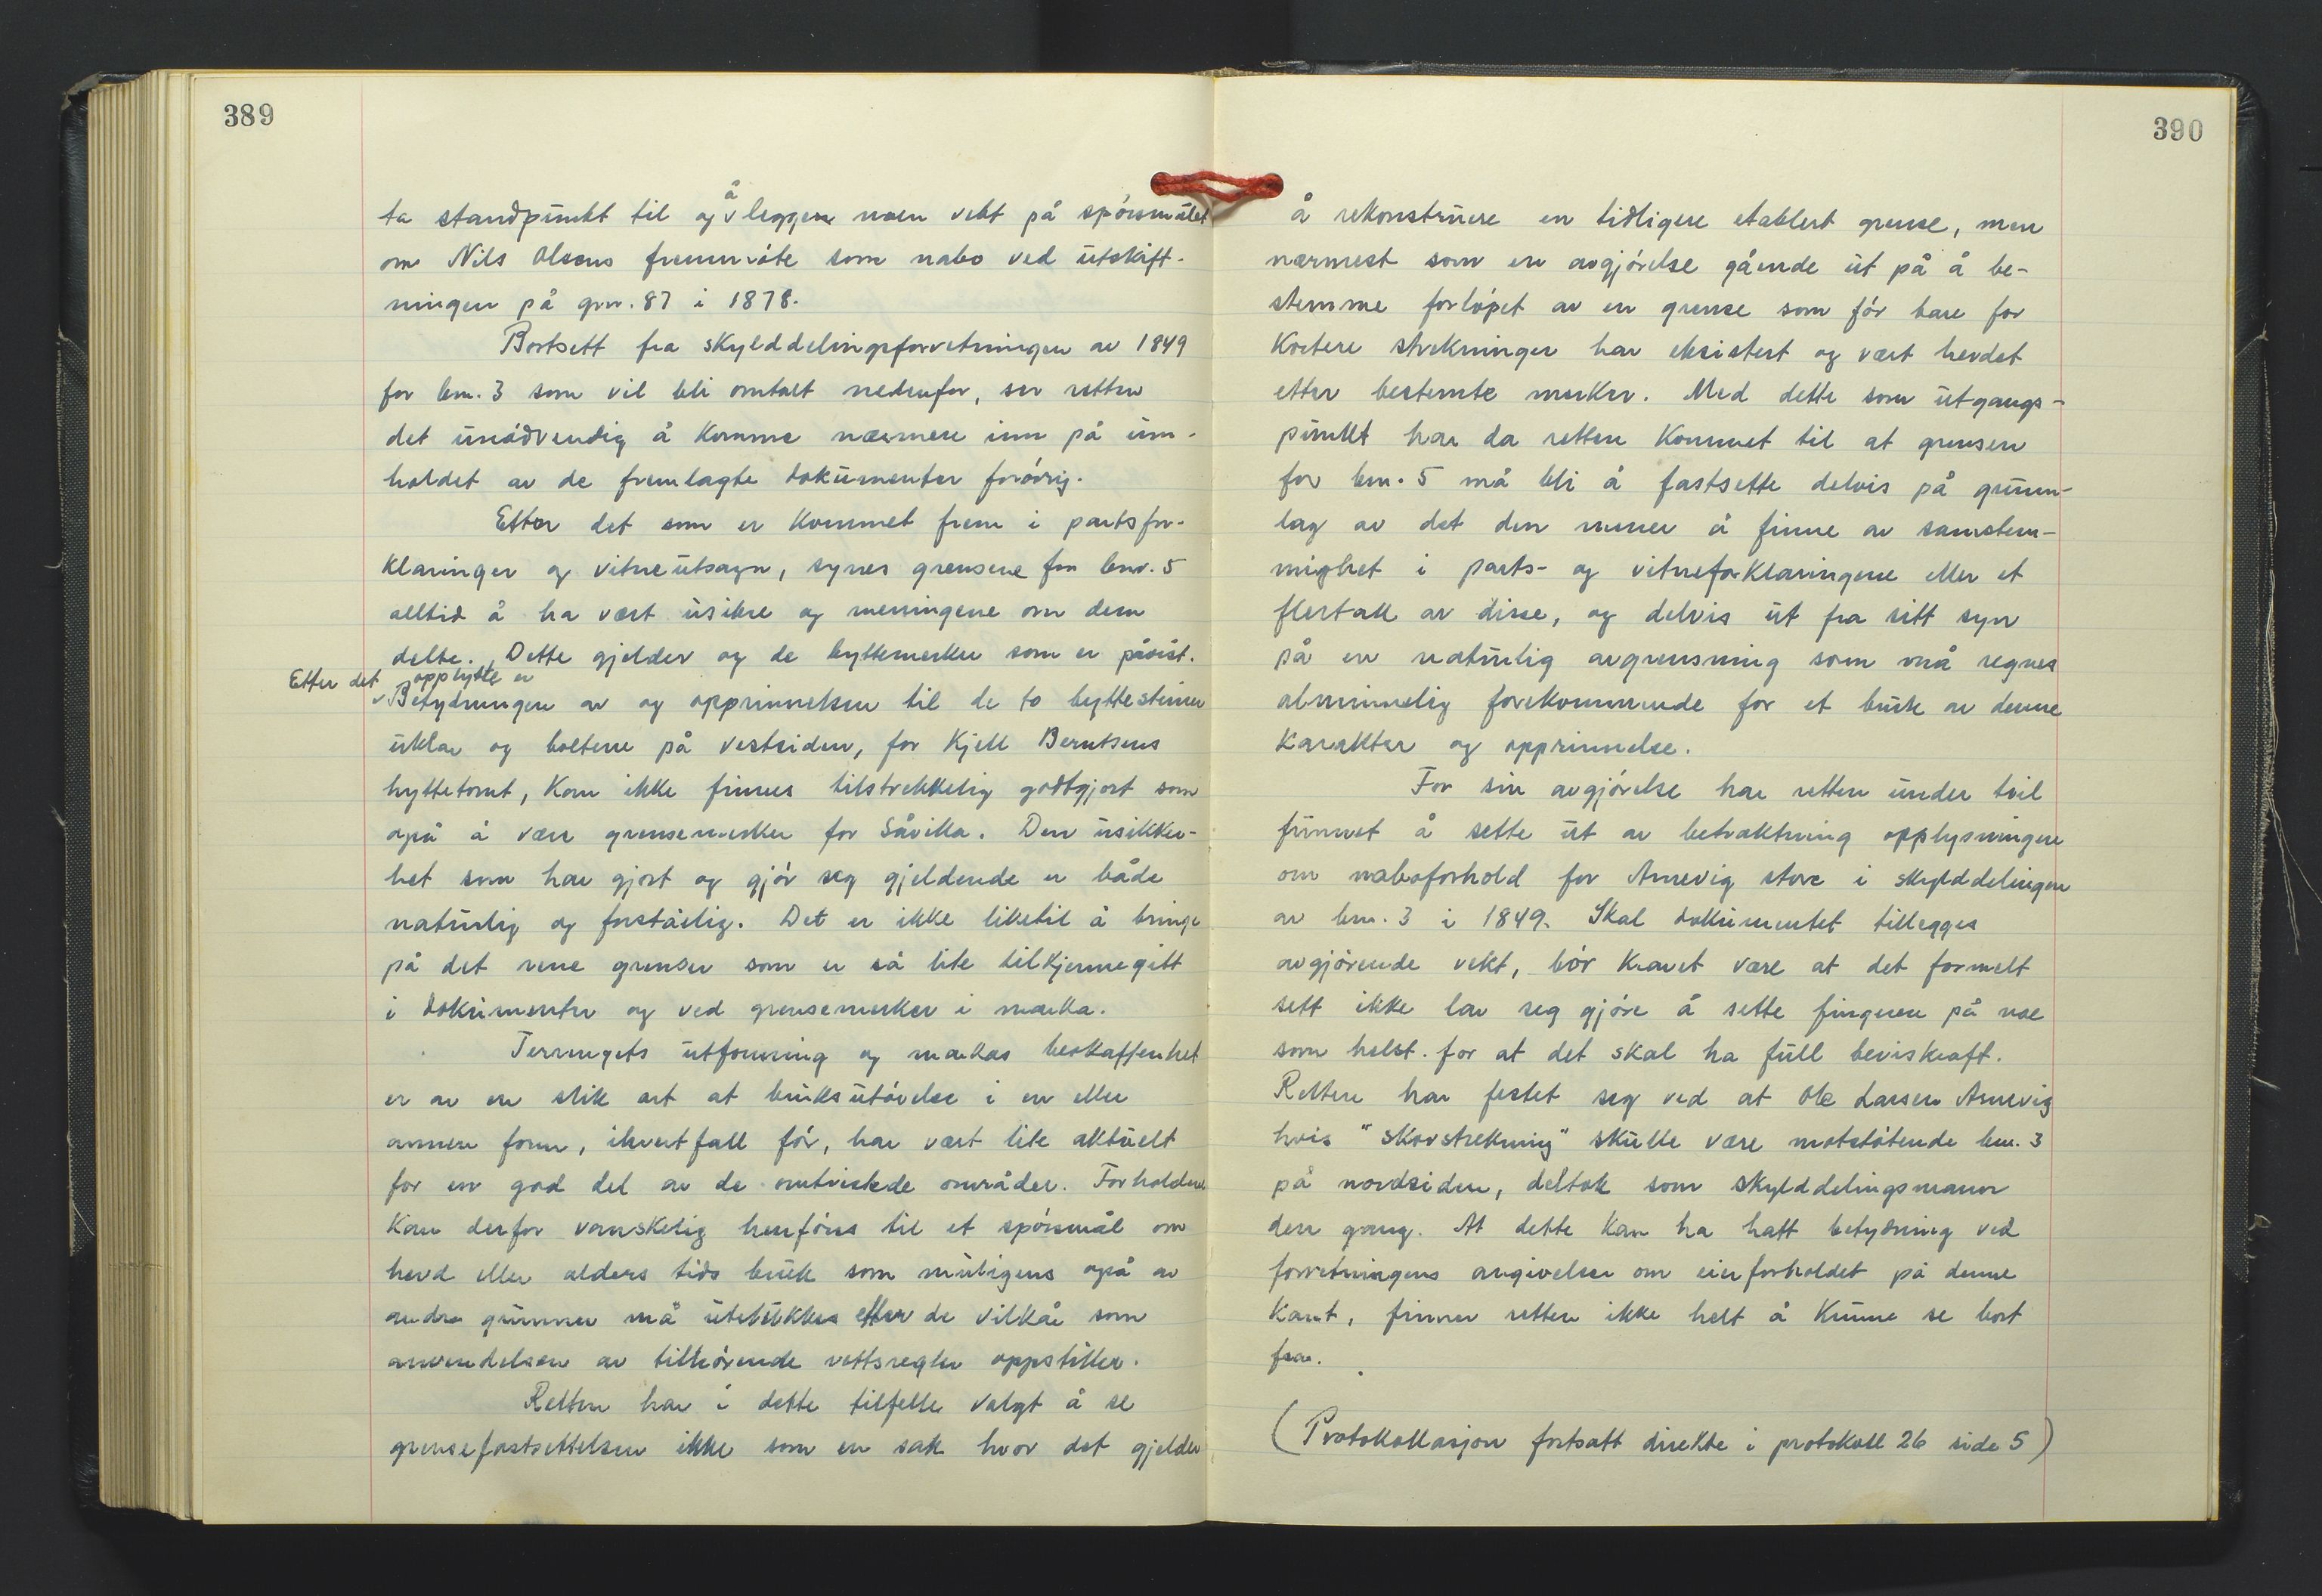 389
ta standpunkt til og å leggen noen vekt på spörsmålet
om Nils Olsens fremmöte som nabo ved utskift-
ningen på gnr. 87 i 1878.
Bortsett fra skylddelingsforretningen av 1849
for bnr. 3 som vil bli omtalt nedenfor, ser retten
det unödvendig å komme nærmere inn på inn-
holdet av de fremlagte dokumenter forövrig.
Etter det som er kommet frem i partsfor-
klaringer og vitneutsagn, synes grensene for bnr. 5
alltid å ha vært usikre og meningene om dem
delte. Dette gjelder og de byttemerker som er påvist.
Etter det opplyste er
Betydningen av og opprinnelsen til de to byttesteiner
uklar og boltene på vestsiden, for Kjell Berntsens
hyttetomt, kan ikke finnes tilstrekkelig godtgjort som
også å være grensemerker for Såvika. Den usikker-
het som har gjort og gjör seg gjeldende er både
naturlig og forståelig. Det er ikke liketil å bringe
på det rene grenser som er så lite tilkjennegitt
i dokumenter og ved grensemerker i marka.
Terrengets utforming og markas beskaffenhet
er av en slik art at bruksutövelse i en eller
annen form, ihvertfall för, har vært lite aktuelt
for en god del av de omtvistede områder. Forholdene
kan derfor vanskelig henföres til et spörsmål om
hevd eller alders tids bruk som muligens også av
andre grunner må utelukkes etter de vilkår som
anvendelsen av tilhörende rettsregler oppstiller.
Retten har i dette tilfelle valgt å se
grensefastsettelsen ikke som en sak hvor det gjelder
390
å rekonstruere en tidligere etablert grense, men
nærmest som en avgjörelse gående ut på å be-
stemme forlöpet av en grense som för bare for
kortere strekninger har eksistert og vært hevdet
etter bestemte merker. Med dette som utgangs-
punkt har da retten kommet til at grensen
for bnr. 5 må bli å fastsette delvis på grunn-
lag av det den mener å finne av samstem-
mighet i parts- og vitneforklaringene eller et
flertall av disse, og delvis ut fra sitt syn
på en naturlig avgrensning som må regnes
alminnelig forekommende for et bruk av denne
karakter og opprinnelse.
For sin avgjörelse har retten under tvil
funnet å sette ut av betraktning opplysningene
om naboforhold for Arnevig store i skylddelingen
av bnr. 3 i 1849. Skal dokumentet tillegges
avgjörende vekt, bör kravet være at det formelt
sett ikke lar seg gjöre å sette fingeren på noe
som helst. for at det skal ha full beviskraft.
Retten har festet seg ved at Ole Larsen Arnevig
hvis "skovstrekning" skulle være motstötende bnr. 3
på nordsiden, deltok som skylddelingsmann
den gang. At dette kan ha hatt betydning ved
forretningens angivelse om eierforholdet på denne
kant, finner retten ikke helt å kunne se bort
fra.
(Protokollasjon fortsatt direkte i protokoll 26 side 5)